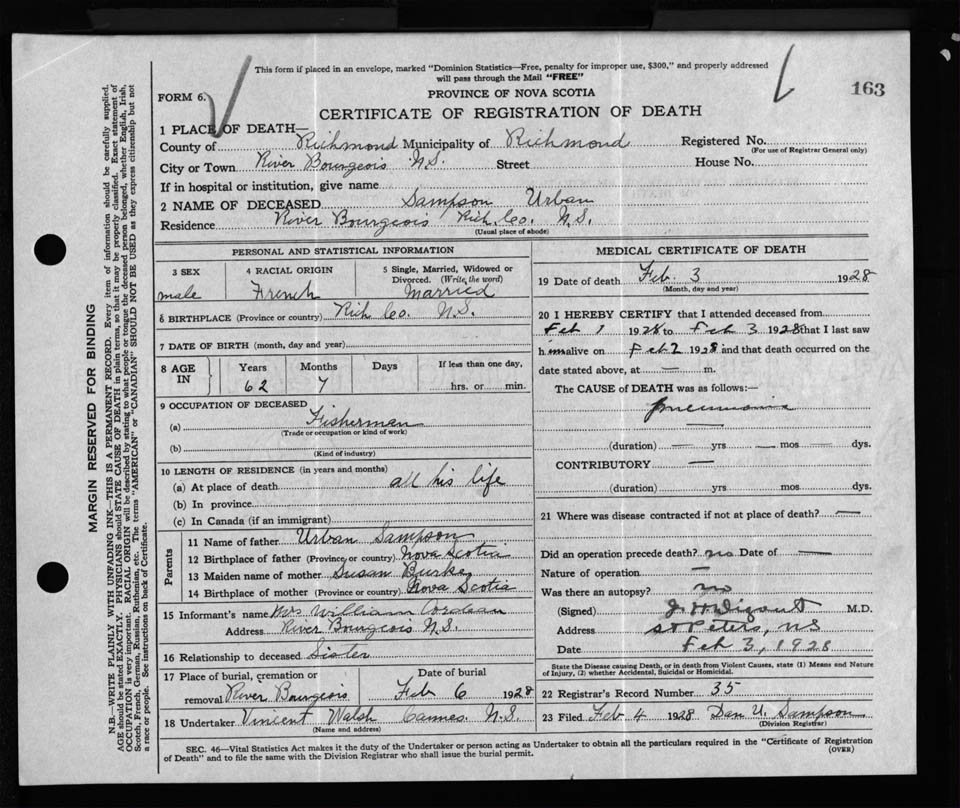 This form if placed in an envelope, marked "Dominion Statistics—Free, penalty for improper use, $300," and properly addressed
will pass through the Mail "FREE"
163
FORM 6.
PROVINCE OF NOVA SCOTIA
CERTIFICATE OF REGISTRATION OF DEATH
1 PLACE OF DEATH—
County of Richmond Municipality of Richmond Registered No.
(For use of Registrar General only)
City or Town River Bourgeois N.S. Street House No.
If in hospital or institution, give name
2 NAME OF DECEASED Sampson Urban
Residence River Bourgeois Rich. Co. N.S.
(Usual place of abode)
PERSONAL AND STATISTICAL INFORMATION
3 SEX 4 RACIAL ORIGIN 5 Single, Married, Widowed or
Divorced. (Write the word)
male French Married
6 BIRTHPLACE (Province or country) Rich Co. N.S.
7 DATE OF BIRTH (month, day and year)
8 AGE IN Years Months Days If less than one day,
62 7 hrs. or min.
9 OCCUPATION OF DECEASED
(a) Fisherman
(Trade or occupation or kind of work)
(b)
(Kind of industry)
10 LENGTH OF RESIDENCE (in years and months)
(a) At place of death all his life
(b) In province
(c) In Canada (if an immigrant)
Parents
11 Name of father Urban Sampson
12 Birthplace of father (Province or country) Nova Scotia
13 Maiden name of mother Susan Burke
14 Birthplace of mother (Province or country) Nova Scotia
15 Informant's name Mrs William
Address River Bourgeois N.S.
16 Relationship to deceased Sister
17 Place of burial, cremation or Date of burial
removal River Bourgeois Feb 6 1928
18 Undertaker Vincent Walsh Cannes. N.S.
(Name and address)
MEDICAL CERTIFICATE OF DEATH
19 Date of death Feb. 3 1928
(Month, day and year)
20 I HEREBY CERTIFY that I attended deceased from
Feb 1 1928 to Feb 3 1928 that I last saw
him alive on Feb 2 1928 and that death occurred on the
date stated above, at — m.
The CAUSE of DEATH was as follows:—
pneumonia
—
(duration) — yrs — mos — dys.
CONTRIBUTORY —
(duration) yrs — mos dys.
21 Where was disease contracted if not at place of death? —
Did an operation precede death? no Date of —
Nature of operation —
Was there an autopsy? no
(Signed) M.D.
Address St Peters, NS
Date Feb 3, 1928
State the Disease causing Death, or in death from Violent Causes, state (1) Means and Nature
of Injury, (2) whether Accidental, Suicidal or Homicidal.
22 Registrar's Record Number 35
23 Filed Feb 4 1928 Dan U. Sampson
(Division Registrar)
SEC. 46—Vital Statistics Act makes it the duty of the Undertaker or person acting as Undertaker to obtain all the particulars required in the "Certificate of Registration
of Death" and to file the same with the Division Registrar who shall issue the burial permit.
(OVER)
MARGIN RESERVED FOR BINDING
N.B.—WRITE PLAINLY WITH UNFADING INK—THIS IS A PERMANENT RECORD. Every item of information should be carefully supplied.
AGE should be stated EXACTLY. PHYSICIANS should STATE CAUSE OF DEATH in plain terms, so that it may be properly classified. Exact statement of
OCCUPATION is very important. RACIAL ORIGIN will be described by stating to what people or tongue the deceased person belonged, whether English, Irish,
Scotch, French, German, Russian, Ruthenian, etc. The terms "AMERICAN" or "CANADIAN" SHOULD NOT BE USED as they express citizenship but not
a race or people. See instructions on back of Certificate.